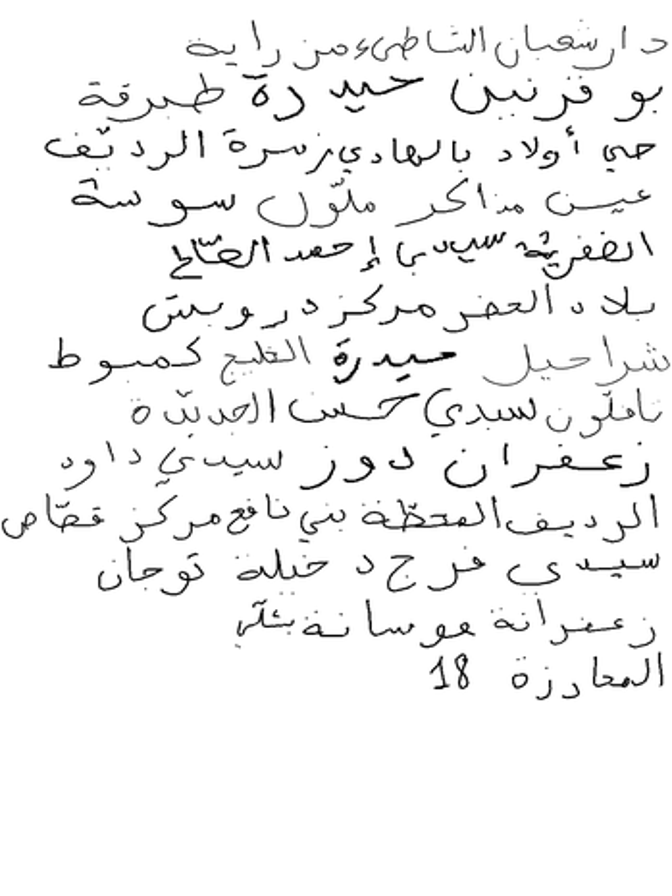 دار شعبان الشاطىء من راية
بو فرنين حيدرة طبرقة
حي أولاد بالهادي زسرة الرديّف
عين مذاكر ملّول سوسة
سيدي إحمد الصّالح
بلاد الحضر مركز درويش
شراحيل حيدرة الخليج كمبوط
نافلون سيدي حسن الجديدة
زعفران دوز سيدي داود
الرديف المحطّة بني نافع مركز قصّاص
سيدي فرج دخيلة توجان
زعفرانة موسانة
المعارزة 18